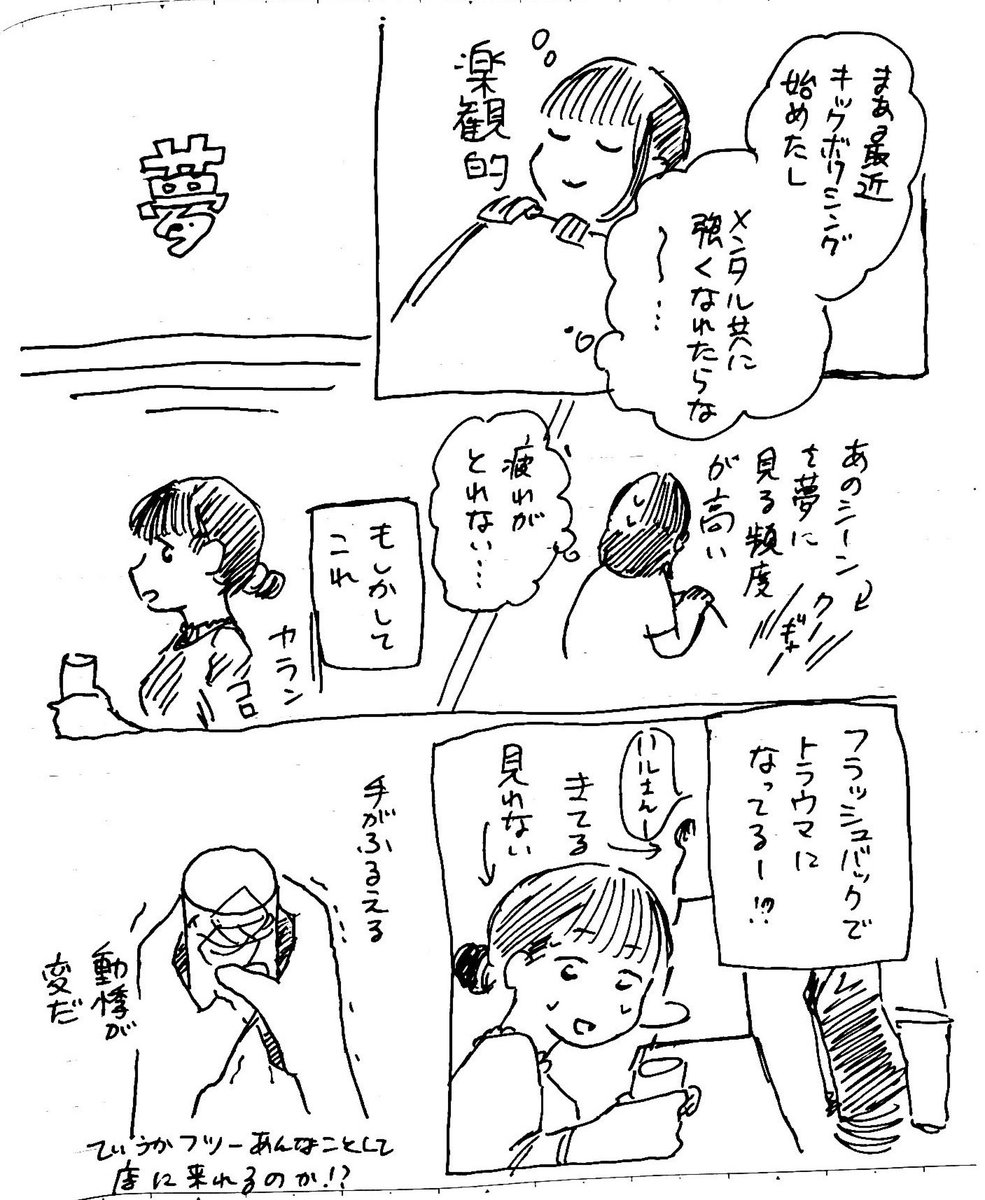 まあ最近
キックボクシング
始めたし
メンタル共に
強くなれたらな
〜…
楽観的
夢
あのシーン
を夢に
見る頻度
が高い
疲れが
とれない…
もしかして
これ
カラン
コロ
フラッシュバックで
トラウマに
なってるー!?
ハルさんー
きてる
見れない
手がふるえる
動悸が
変だ
ていうかフツーあんなことして
店に来れるのか!?